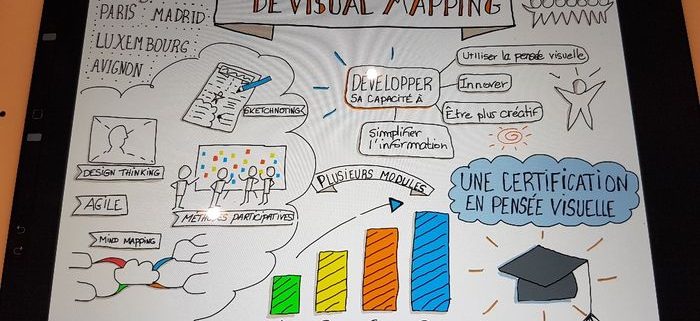 DE VISUAL MAPPING
PARIS MADRID
LUXEMBOURG
AVIGNON
SKETCHNOTING
DESIGN THINKING
AGILE
MÉTHODES PARTICIPATIVES
MIND MAPPING
DEVELOPPER
SA CAPACITÉ À
Utiliser la pensée visuelle
Innover
Être plus créatif
Simplifier
l'information
PLUSIEURS MODULES
UNE CERTIFICATION
EN PENSÉE VISUELLE